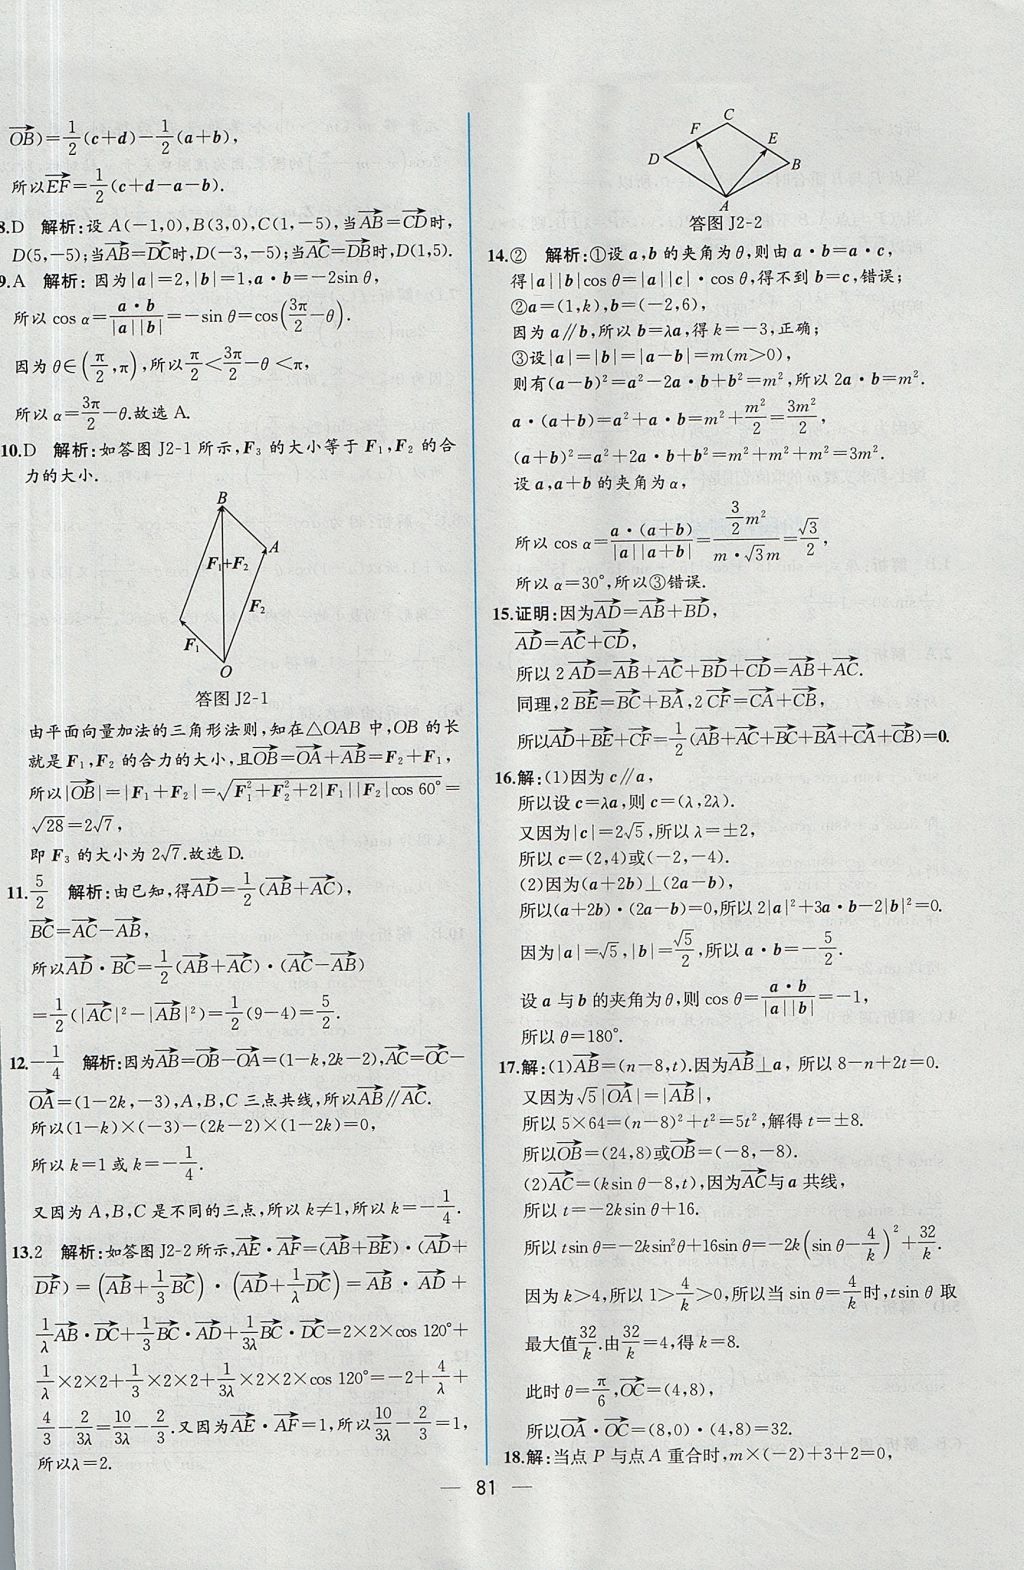 $\overrightarrow{OB})=\frac{1}{2}(c+d)-\frac{1}{2}(a+b)$,
所以$\overrightarrow{EF}=\frac{1}{2}(c+d-a-b)$.
8.D 解析:设 A(-1,0),B(3,0),C(1,-5),当$\overrightarrow{AB}=\overrightarrow{CD}$时,
D(5,-5);当$\overrightarrow{AB}=\overrightarrow{DC}$时,D(-3,-5);当$\overrightarrow{AC}=\overrightarrow{DB}$时,D(1,5).
9.A 解析:因为|a|=2,|b|=1,a·b=-2sin θ,
所以 cos α=$\frac{a·b}{|a||b|}$=-sin θ=cos$\left(\frac{3π}{2}-θ\right)$.
因为 θ∈$\left(\frac{π}{2},π\right)$,所以$\frac{π}{2}<\frac{3π}{2}-θ<π$,
所以 α=$\frac{3π}{2}$-θ.故选 A.
10.D 解析:如答图 J2-1 所示,F₃ 的大小等于 F₁,F₂ 的合
力的大小.
B
A
F₁+F₂
F₂
F₁
O
答图 J2-1
由平面向量加法的三角形法则,知在△OAB 中,OB 的长
就是 F₁,F₂ 的合力的大小,且$\overrightarrow{OB}=\overrightarrow{OA}+\overrightarrow{AB}$=F₂+F₁,
所以|$\overrightarrow{OB}$|=|F₁+F₂|=$\sqrt{F_1^2+F_2^2+2|F_1||F_2|\cos 60°}$=
$\sqrt{28}=2\sqrt{7}$,
即 F₃ 的大小为 2$\sqrt{7}$.故选 D.
11.$\frac{5}{2}$ 解析:由已知,得$\overrightarrow{AD}=\frac{1}{2}(\overrightarrow{AB}+\overrightarrow{AC})$,
$\overrightarrow{BC}=\overrightarrow{AC}-\overrightarrow{AB}$,
所以$\overrightarrow{AD}·\overrightarrow{BC}=\frac{1}{2}(\overrightarrow{AB}+\overrightarrow{AC})·(\overrightarrow{AC}-\overrightarrow{AB})$
$=\frac{1}{2}(|\overrightarrow{AC}|^2-|\overrightarrow{AB}|^2)=\frac{1}{2}(9-4)=\frac{5}{2}$.
12.$-\frac{1}{4}$ 解析:因为$\overrightarrow{AB}=\overrightarrow{OB}-\overrightarrow{OA}$=(1-k,2k-2),$\overrightarrow{AC}=\overrightarrow{OC}-$
$\overrightarrow{OA}$=(1-2k,-3),A,B,C 三点共线,所以$\overrightarrow{AB}∥\overrightarrow{AC}$.
所以(1-k)×(-3)-(2k-2)×(1-2k)=0,
所以 k=1 或 k=$-\frac{1}{4}$.
又因为 A,B,C 是不同的三点,所以 k≠1,所以 k=$-\frac{1}{4}$.
13.2 解析:如答图 J2-2 所示,$\overrightarrow{AE}·\overrightarrow{AF}=(\overrightarrow{AB}+\overrightarrow{BE})·(\overrightarrow{AD}+$
$\overrightarrow{DF})=\left(\overrightarrow{AB}+\frac{1}{3}\overrightarrow{BC}\right)·\left(\overrightarrow{AD}+\frac{1}{λ}\overrightarrow{DC}\right)=\overrightarrow{AB}·\overrightarrow{AD}+$
$\frac{1}{λ}\overrightarrow{AB}·\overrightarrow{DC}+\frac{1}{3}\overrightarrow{BC}·\overrightarrow{AD}+\frac{1}{3λ}\overrightarrow{BC}·\overrightarrow{DC}$=2×2×cos 120°+
$\frac{1}{λ}$×2×2+$\frac{1}{3}$×2×2+$\frac{1}{3λ}$×2×2×cos 120°=-2+$\frac{4}{λ}$+
$\frac{4}{3}-\frac{2}{3λ}=\frac{10}{3λ}-\frac{2}{3}$.又因为$\overrightarrow{AE}·\overrightarrow{AF}$=1,所以$\frac{10}{3λ}-\frac{2}{3}$=1,
所以 λ=2.
C
F
E
D
B
A
答图 J2-2
14.② 解析:①设 a,b 的夹角为 θ,则由 a·b=a·c,
得|a||b|cos θ=|a||c|·cos θ,得不到 b=c,错误;
②a=(1,k),b=(-2,6),
因为 a∥b,所以 b=λa,得 k=-3,正确;
③设|a|=|b|=|a-b|=m(m>0),
则有(a-b)²=a²-2a·b+b²=m²,所以 2a·b=m².
a·(a+b)=a²+a·b=m²+$\frac{m^2}{2}=\frac{3m^2}{2}$,
(a+b)²=a²+2a·b+b²=m²+m²+m²=3m².
设 a,a+b 的夹角为 α,
所以 cos α=$\frac{a·(a+b)}{|a||a+b|}=\frac{\frac{3}{2}m^2}{m·\sqrt{3}m}=\frac{\sqrt{3}}{2}$,
所以 α=30°,所以③错误.
15.证明:因为$\overrightarrow{AD}=\overrightarrow{AB}+\overrightarrow{BD}$,
$\overrightarrow{AD}=\overrightarrow{AC}+\overrightarrow{CD}$,
所以 2$\overrightarrow{AD}=\overrightarrow{AB}+\overrightarrow{AC}+\overrightarrow{BD}+\overrightarrow{CD}=\overrightarrow{AB}+\overrightarrow{AC}$.
同理,2$\overrightarrow{BE}=\overrightarrow{BC}+\overrightarrow{BA}$,2$\overrightarrow{CF}=\overrightarrow{CA}+\overrightarrow{CB}$,
所以$\overrightarrow{AD}+\overrightarrow{BE}+\overrightarrow{CF}=\frac{1}{2}(\overrightarrow{AB}+\overrightarrow{AC}+\overrightarrow{BC}+\overrightarrow{BA}+\overrightarrow{CA}+\overrightarrow{CB})$=0.
16.解:(1)因为 c∥a,
所以设 c=λa,则 c=(λ,2λ).
又因为|c|=2$\sqrt{5}$,所以 λ=±2,
所以 c=(2,4)或(-2,-4).
(2)因为(a+2b)⊥(2a-b),
所以(a+2b)·(2a-b)=0,所以 2|a|²+3a·b-2|b|²=0.
因为|a|=$\sqrt{5}$,|b|=$\frac{\sqrt{5}}{2}$,所以 a·b=$-\frac{5}{2}$.
设 a 与 b 的夹角为 θ,则 cos θ=$\frac{a·b}{|a||b|}$=-1,
所以 θ=180°.
17.解:(1)$\overrightarrow{AB}$=(n-8,t).因为$\overrightarrow{AB}$⊥a,所以 8-n+2t=0.
又因为$\sqrt{5}|\overrightarrow{OA}|=|\overrightarrow{AB}|$,
所以 5×64=(n-8)²+t²=5t²,解得 t=±8.
所以$\overrightarrow{OB}$=(24,8)或$\overrightarrow{OB}$=(-8,-8).
(2)$\overrightarrow{AC}$=(ksin θ-8,t),因为$\overrightarrow{AC}$与 a 共线,
所以 t=-2ksin θ+16.
所以 tsin θ=-2ksin²θ+16sin θ=-2k$\left(\sin θ-\frac{4}{k}\right)^2+\frac{32}{k}$.
因为 k>4,所以 1>$\frac{4}{k}$>0,所以当 sin θ=$\frac{4}{k}$时,tsin θ 取
最大值$\frac{32}{k}$.由$\frac{32}{k}$=4,得 k=8.
此时 θ=$\frac{π}{6}$,$\overrightarrow{OC}$=(4,8),
所以$\overrightarrow{OA}·\overrightarrow{OC}$=(8,0)·(4,8)=32.
18.解:当点 P 与点 A 重合时,m×(-2)+3+2=0,
— 81 —